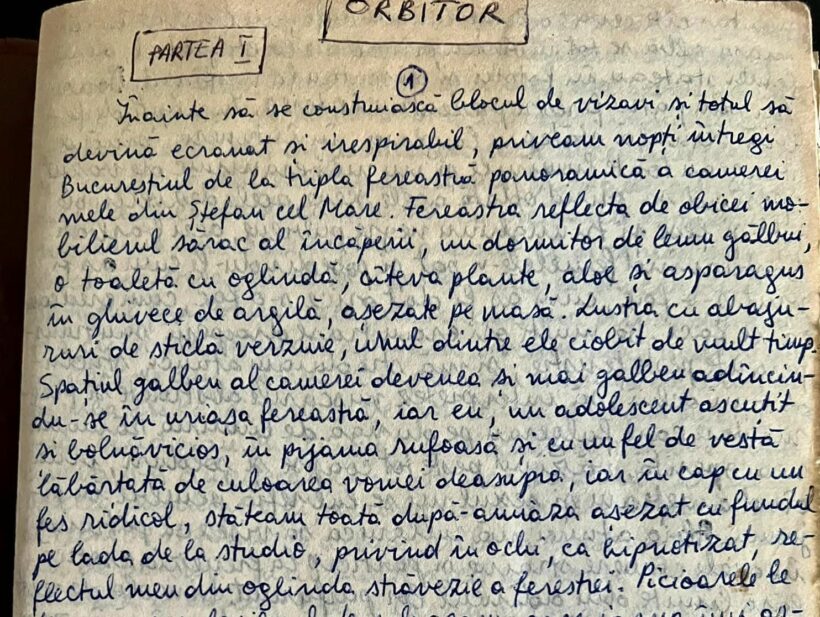 ORBITOR
PARTEA I
1
Înainte să se construiască blocul de vizavi și totul să
devină ecranat și irespirabil, priveam nopți întregi
Bucureștiul de la tripla fereastră panoramică a camerei
mele din Ștefan cel Mare. Fereastra reflecta de obicei mo-
bilierul sărac al încăperii, un dormitor de lemn gălbui,
o toaletă cu oglindă, cîteva plante, aloe și asparagus
în ghivece de argilă, așezate pe masă. Lustra cu abaju-
ruri de sticlă verzuie, unul dintre ele ciobit de mult timp.
Spațiul galben al camerei devenea și mai galben adîncin-
du-se în uriașa fereastră, iar eu, un adolescent ascuțit
și bolnăvicios, în pijama rufoasă și cu un fel de vestă
lăbărțată de culoarea vomei deasupra, iar în cap cu un
fes ridicol, stăteam toată după-amiaza așezat cu fundul
pe lada de la studio, privind în ochi, ca hipnotizat, re-
flectul meu din oglinda străvezie a ferestrei. Picioarele le